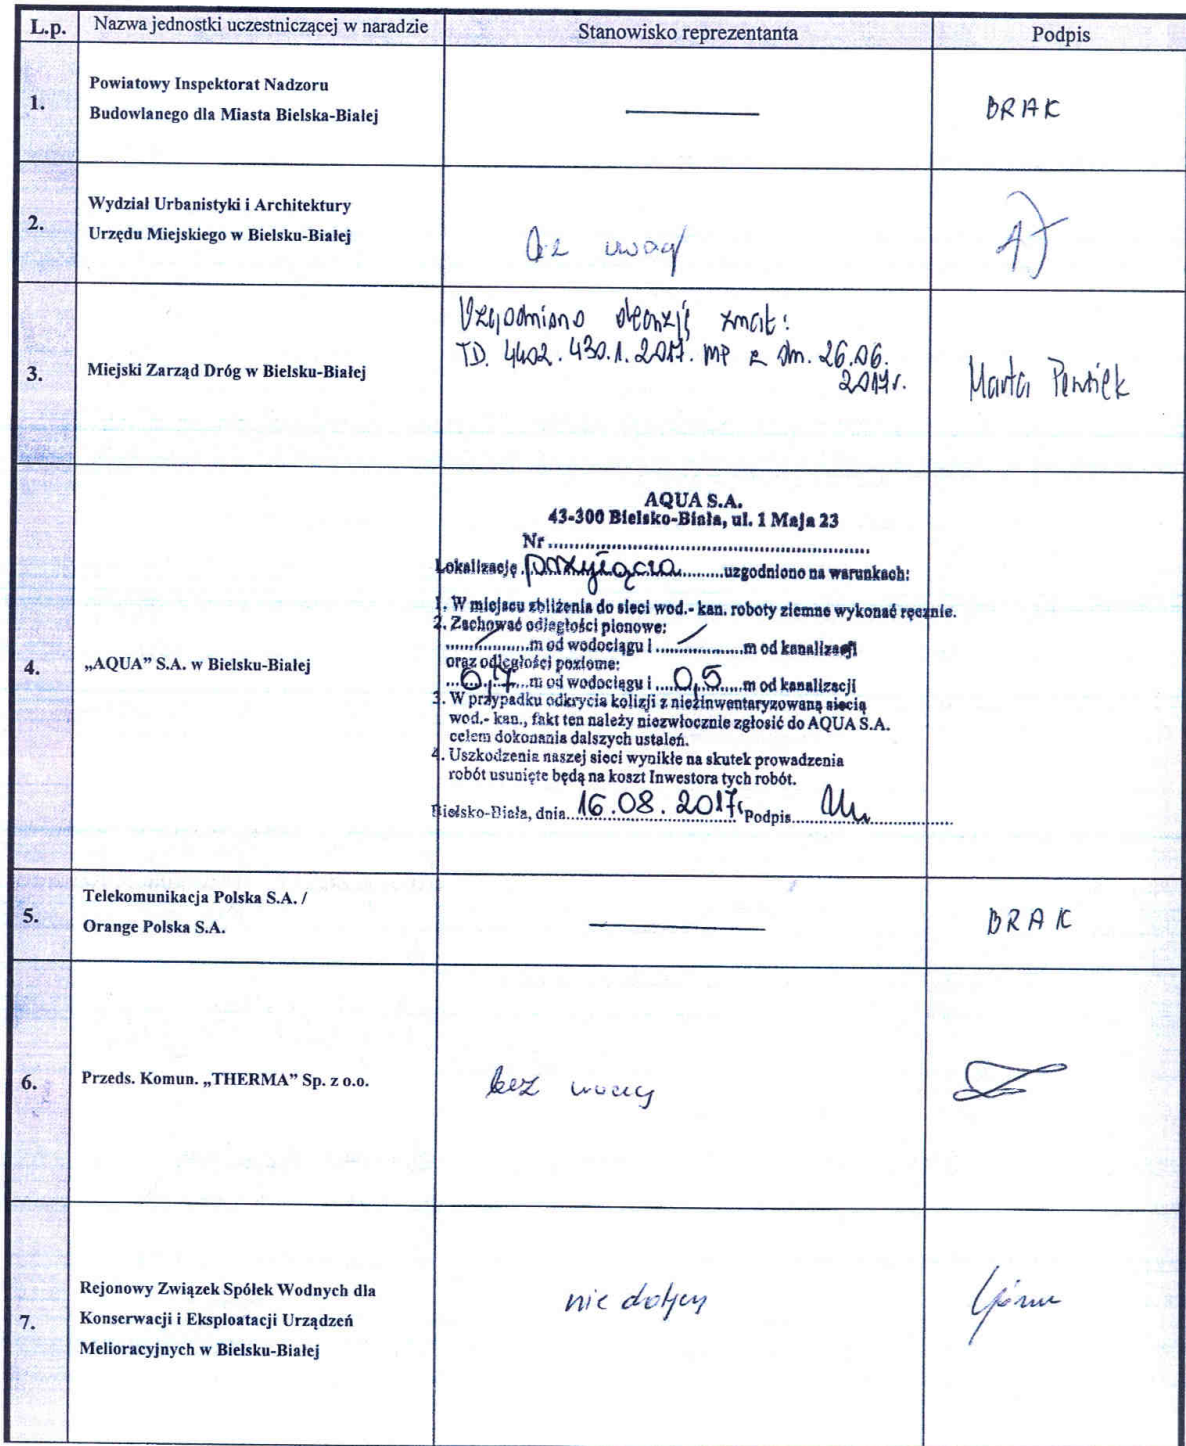 L.p. Nazwa jednostki uczestniczącej w naradzie Stanowisko reprezentanta Podpis
1. Powiatowy Inspektorat Nadzoru
Budowlanego dla Miasta Bielska-Białej
BRAK
2. Wydział Urbanistyki i Architektury
Urzędu Miejskiego w Bielsku-Białej
bez uwag
3. Miejski Zarząd Dróg w Bielsku-Białej
Uzgodniono decyzją znak:
TD. 4402.430.1.2017. MP z dn. 26.06.
2017r.
Marta
4. „AQUA” S.A. w Bielsku-Białej
AQUA S.A.
43-300 Bielsko-Biała, ul. 1 Maja 23
Nr
Lokalizację przyłącza uzgodniono na warunkach:
1. W miejscu zbliżenia do sieci wod.- kan. roboty ziemne wykonać ręcznie.
2. Zachować odległości pionowe:
m od wodociągu i m od kanalizacji
oraz odległości poziome:
0,7 m od wodociągu i 0,5 m od kanalizacji
3. W przypadku odkrycia kolizji z niezinwentaryzowaną siecią
wod.- kan., fakt ten należy niezwłocznie zgłosić do AQUA S.A.
celem dokonania dalszych ustaleń.
4. Uszkodzenia naszej sieci wynikłe na skutek prowadzenia
robót usunięte będą na koszt Inwestora tych robót.
Bielsko-Biała, dnia 16.08.2017r Podpis
5. Telekomunikacja Polska S.A. /
Orange Polska S.A.
BRAK
6. Przeds. Komun. „THERMA” Sp. z o.o.
bez uwag
7. Rejonowy Związek Spółek Wodnych dla
Konserwacji i Eksploatacji Urządzeń
Melioracyjnych w Bielsku-Białej
nie dotyczy